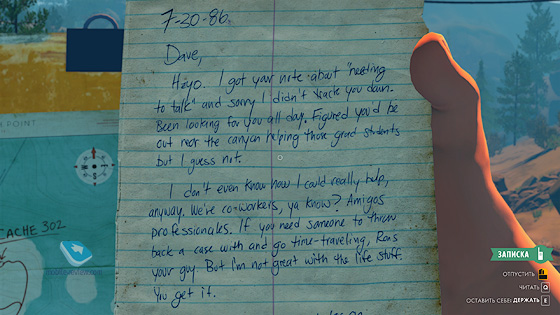 7-20-86.
Dave,
Heyo. I got your note about "needing
to talk" and sorry I didn't track you down.
Been looking for you all day. Figured you'd be
out near the canyon helping those grad students
but I guess not.
I don't even know how I could really help,
anyway. We're co-workers, ya know? Amigos
professionales. If you need someone to throw
back a case with and go time-traveling, Ron's
your guy. But I'm not great with the life stuff.
You get it.
POINT
CACHE 302
ЗАПИСКА
ОТПУСТИТЬ
ЧИТАТЬ
ОСТАВИТЬ СЕБЕ: ДЕРЖАТЬ E